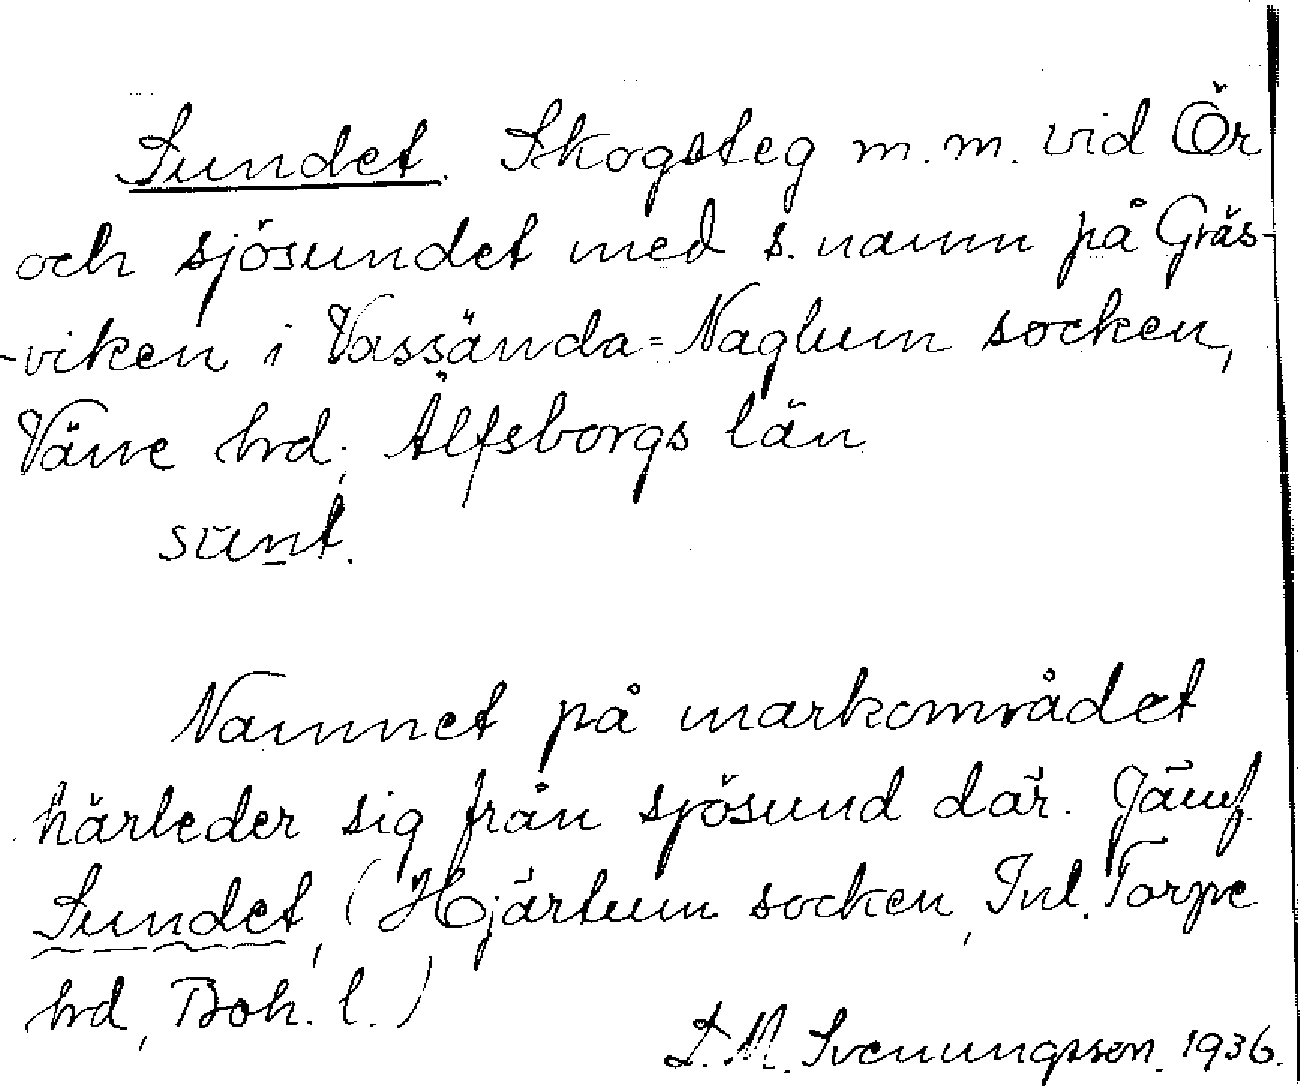 Sundet. Skogsteg m.m. vid Ör
och sjösundet med s. namn på Gräs-
-viken i Vassända=Naglum socken,
Väne hrd, Älfsborgs län
sunt.
Namnet på markområdet
härleder sig från sjösund där. Jämf.
Sundet, (Hjärtum socken, Inl. Torpe
hrd, Boh. l.)
D. M. Svenungsson. 1936.